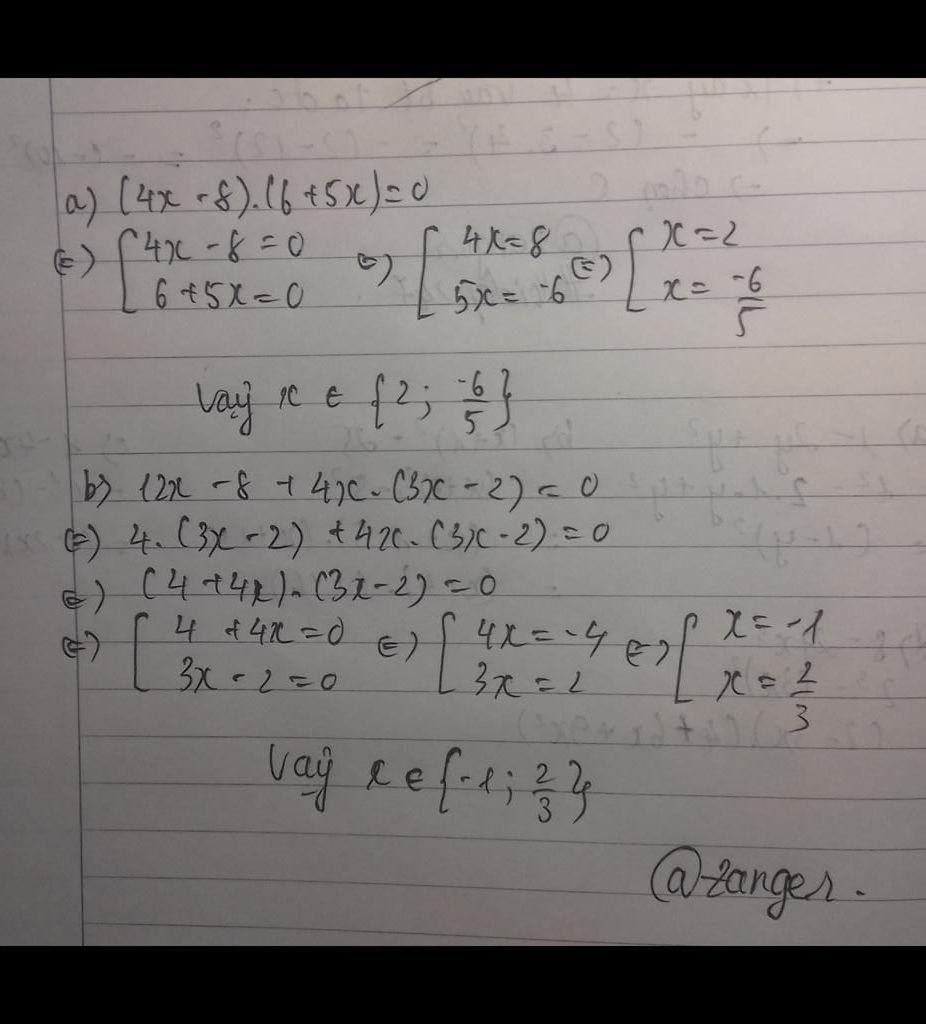 a) (4x - 8).(6 + 5x) = 0
(=) [4x - 8 = 0 (=) [4x = 8 (=) [x = 2
6 + 5x = 0 5x = -6 x = -6/5
Vậy x ∈ {2; -6/5}
b) 12x - 8 + 4x.(3x - 2) = 0
(=) 4.(3x - 2) + 4x.(3x - 2) = 0
(=) (4 + 4x).(3x - 2) = 0
(=) [4 + 4x = 0 (=) [4x = -4 (=) [x = -1
3x - 2 = 0 3x = 2 x = 2/3
Vậy x ∈ {-1; 2/3}
@zanger.